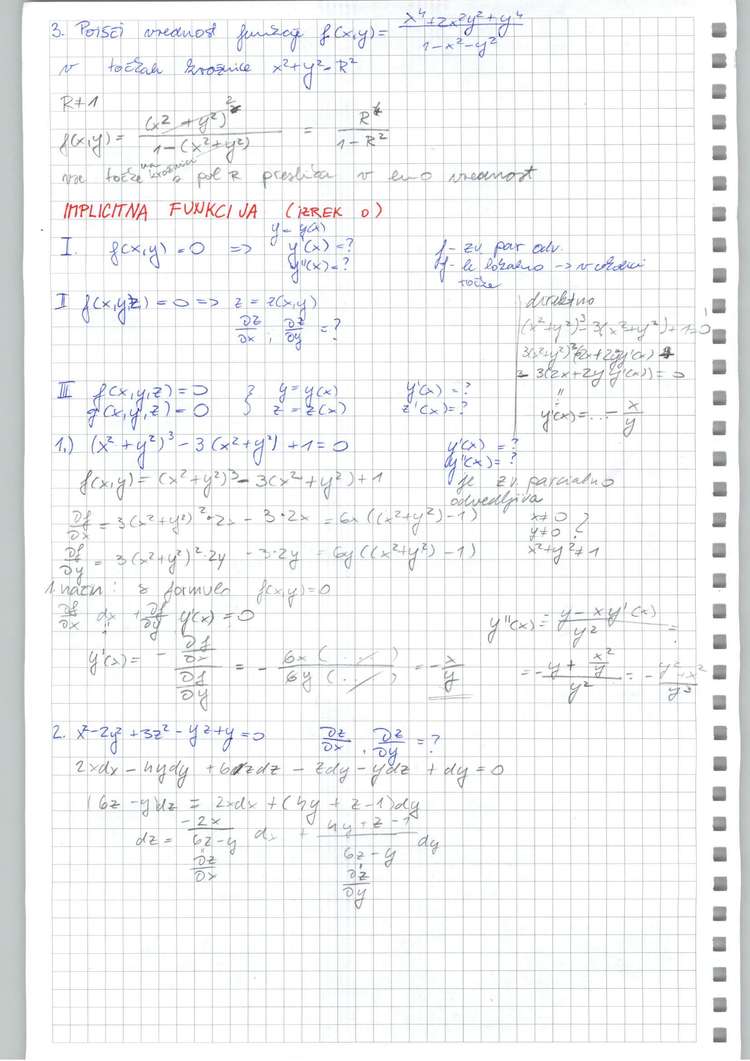 3. Poišči vrednost funkcije f(x,y) = (x⁴+2x²y²+y⁴)/(1-x²-y²)
v točkah krožnice x²+y²=R²
R≠1
f(x,y) = (x²+y²)²/(1-(x²+y²)) = R⁴/(1-R²)
vse točke na krožnici s pol R preslika v eno vrednost
IMPLICITNA FUNKCIJA (IZREK O)
y = y(x)
I. f(x,y) = 0 => y'(x) = ?
y''(x) = ?
f - zv. par. odv.
f - le lokalno -> v okolici
točke
II f(x,y,z) = 0 => z = z(x,y)
∂z/∂x, ∂z/∂y = ?
direktno
(x²+y²)³ - 3(x²+y²) + 1 = 0 '
3(x²+y²)²(2x+2yy'(x))
- 3(2x+2y y'(x)) = 0
y'(x) = ... - x/y
III f(x,y,z) = 0 } y = y(x) y'(x) = ?
g(x,y,z) = 0 } z = z(x) z'(x) = ?
1.) (x²+y²)³ - 3(x²+y²) + 1 = 0 y'(x) = ?
y''(x) = ?
f(x,y) = (x²+y²)³ - 3(x²+y²) + 1 je zv. parcialno
odvedljiva
∂f/∂x = 3(x²+y²)²·2x - 3·2x = 6x((x²+y²)²-1) x≠0 ?
y≠0
∂f/∂y = 3(x²+y²)²·2y - 3·2y = 6y((x²+y²)²-1) x²+y²≠1
1. način: s formulo f(x,y) = 0
∂f/∂x dx + ∂f/∂y y'(x) = 0
y''(x) = - (y - xy'(x))/y² =
y'(x) = - (∂f/∂x)/(∂f/∂y) = - 6x(·/.)/6y(·/.) = - x/y
= - (y + x²/y)/y² = - (y²+x²)/y³
2. x²-2y²+3z²-yz+y=0 ∂z/∂x, ∂z/∂y = ?
2xdx - 4ydy + 6zdz - zdy - ydz + dy = 0
(6z-y)dz = 2xdx + (4y+z-1)dy
dz = -2x/(6z-y) dx + (4y+z-1)/(6z-y) dy
∂z/∂x ∂z/∂y